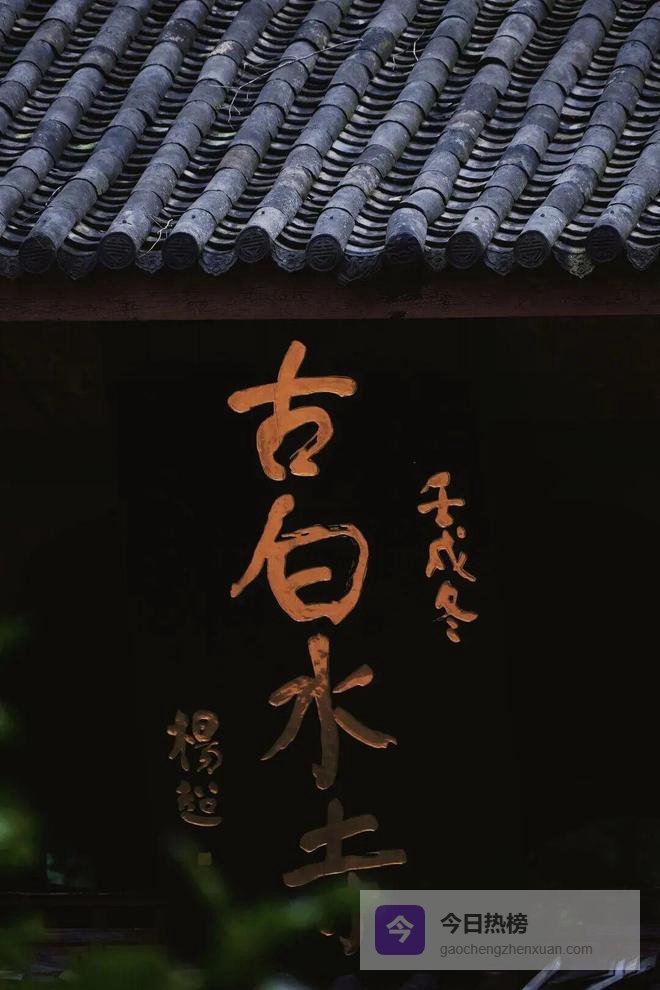 壬戌冬
古白水寺
楊超
今 今日热榜
gaochengzhenxuan.com